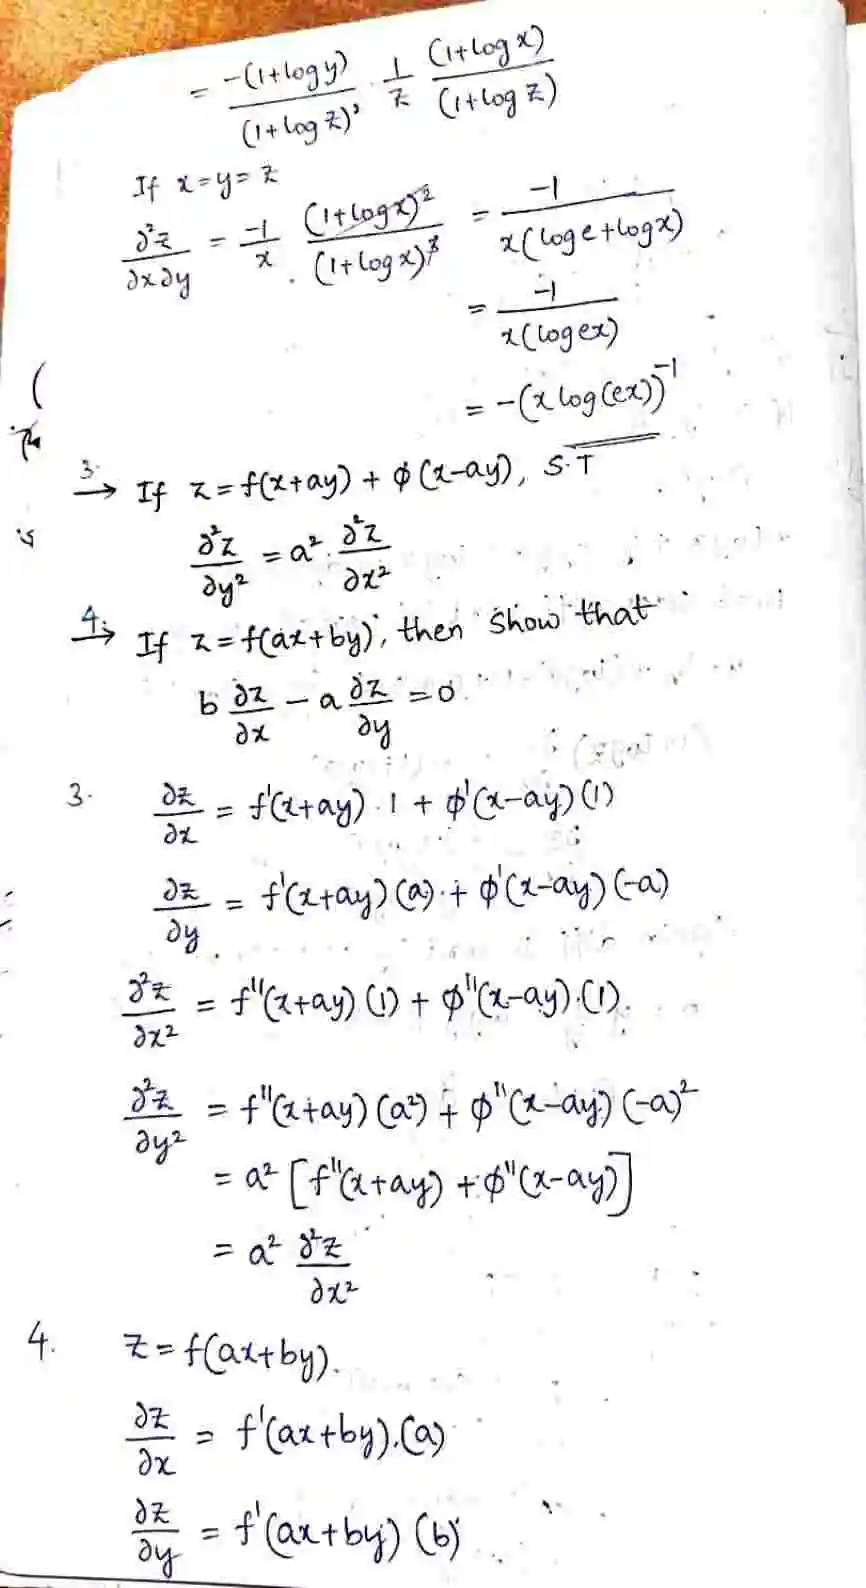 = -(1+log y)/(1+log z)² · 1/z (1+log x)/(1+log z)
If x=y=z
∂²z/∂x∂y = -1/x · (1+log x)²/(1+log x)³ = -1/x(log e+log x)
= -1/x(log ex)
= -(x log(ex))⁻¹
3. → If z = f(x+ay) + φ(x-ay), S.T
∂²z/∂y² = a² · ∂²z/∂x²
4. → If z = f(ax+by), then show that
b ∂z/∂x - a ∂z/∂y = 0
3. ∂z/∂x = f'(x+ay) · 1 + φ'(x-ay)(1)
∂z/∂y = f'(x+ay)(a) + φ'(x-ay)(-a)
∂²z/∂x² = f''(x+ay)(1) + φ''(x-ay).(1)
∂²z/∂y² = f''(x+ay)(a²) + φ''(x-ay)(-a)²
= a² [f''(x+ay) + φ''(x-ay)]
= a² ∂²z/∂x²
4. z = f(ax+by).
∂z/∂x = f'(ax+by).(a)
∂z/∂y = f'(ax+by)(b)